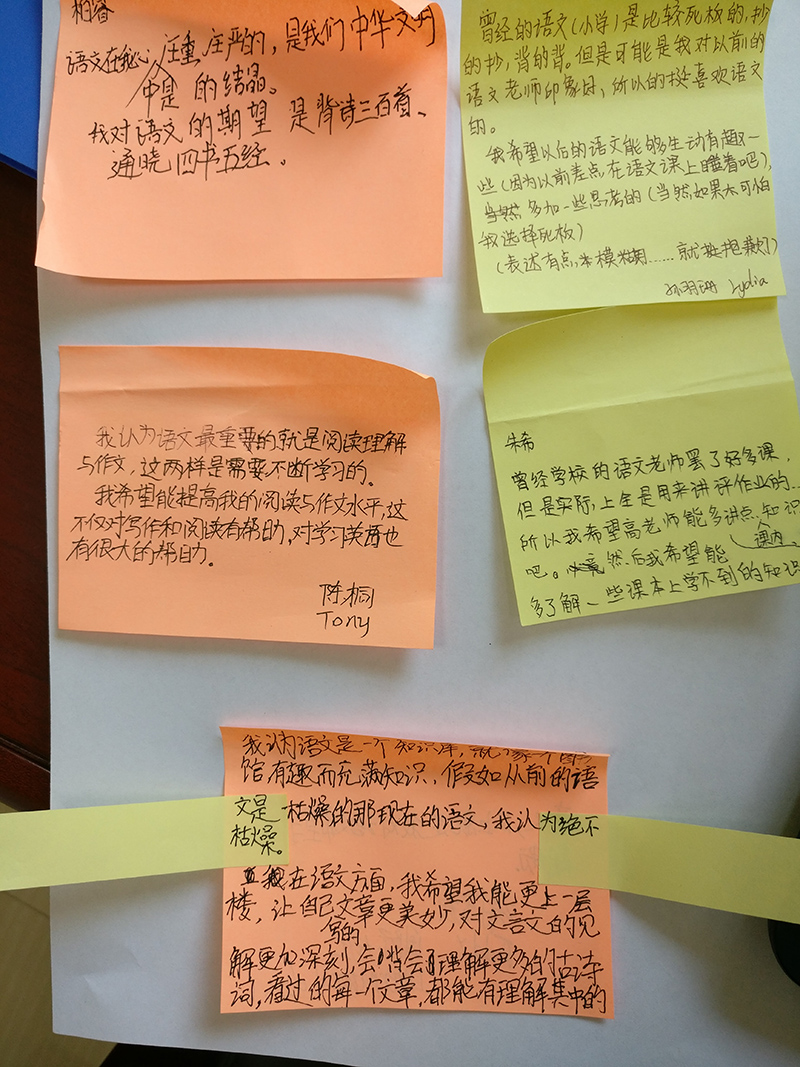 柏睿
语文在我心中是庄重、庄严的,是我们中华文明
的结晶。
我对语文的期望是背诗三百首、
通晓四书五经。
曾经的语文(小学)是比较死板的,抄
的抄,背的背。但是可能是我对以前的
语文老师印象好,所以的挺喜欢语文
的。
我希望以后的语文能够生动有趣一
些(因为以前差点在语文课上睡着吧),
当然多加一些思考的(当然如果太可怕
我选择死板)
(表述有点模糊……就挺抱歉了)
孙羽珊 Lydia
我认为语文最重要的就是阅读理解
与作文,这两样是需要不断学习的。
我希望能提高我的阅读与作文水平,这
不仅对写作和阅读有帮助,对学习英语也
有很大的帮助。
陈桐
Tony
朱希
曾经学校的语文老师罢了好多课,
但是实际上全是用来讲评作业的…
所以我希望高老师能多讲点课内知识
吧。然后我希望能
多了解一些课本上学不到的知识
我认为语文是一个知识库,就像一个图书
馆有趣而充满知识,假如从前的语
文是枯燥的那现在的语文,我认为绝不
枯燥。
在语文方面,我希望我能更上一层
楼,让自己写的文章更美妙,对文言文的见
解更加深刻,会理解更多的古诗
词,看过的每一个文章,都能有理解其中的